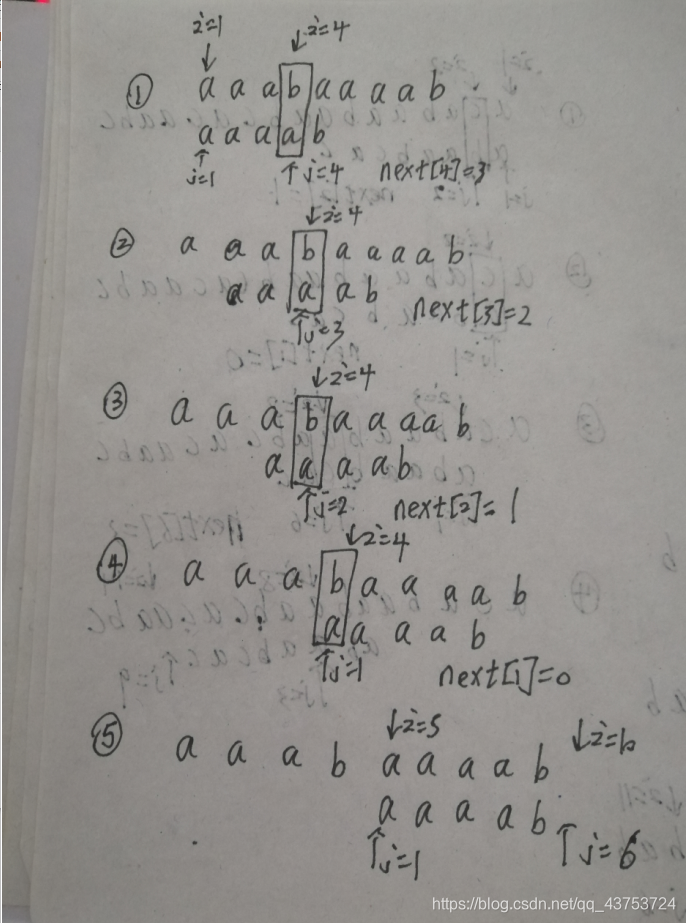 ↓i=1 ↓i=4
① a a a b a a a a b
a a a a b
↑j=1 ↑j=4 next[4]=3
↓i=4
② a a a b a a a a b
a a a a b
↑j=3 next[3]=2
↓i=4
③ a a a b a a a a b
a a a a b
↑j=2 next[2]=1
↓i=4
④ a a a b a a a a b
a a a a b
↑j=1 next[1]=0
↓i=5 ↓i=10
⑤ a a a b a a a a b
a a a a b
↑j=1 ↑j=6
https://blog.csdn.net/qq_43753724